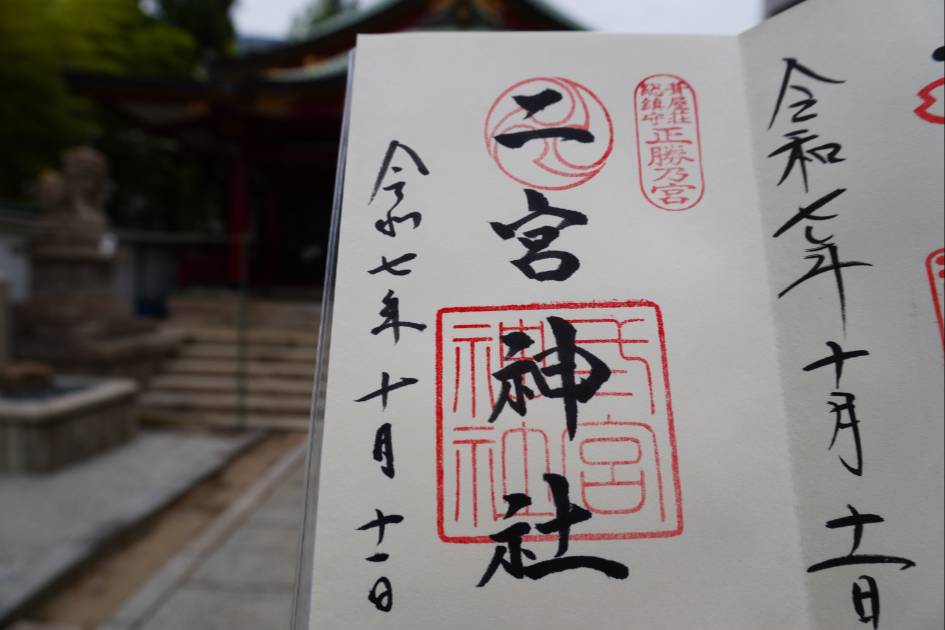 令和七年十月十一日
葺屋荘
総鎮守
正勝乃宮
二宮神社
弍宮神社
令和七年十月十一日